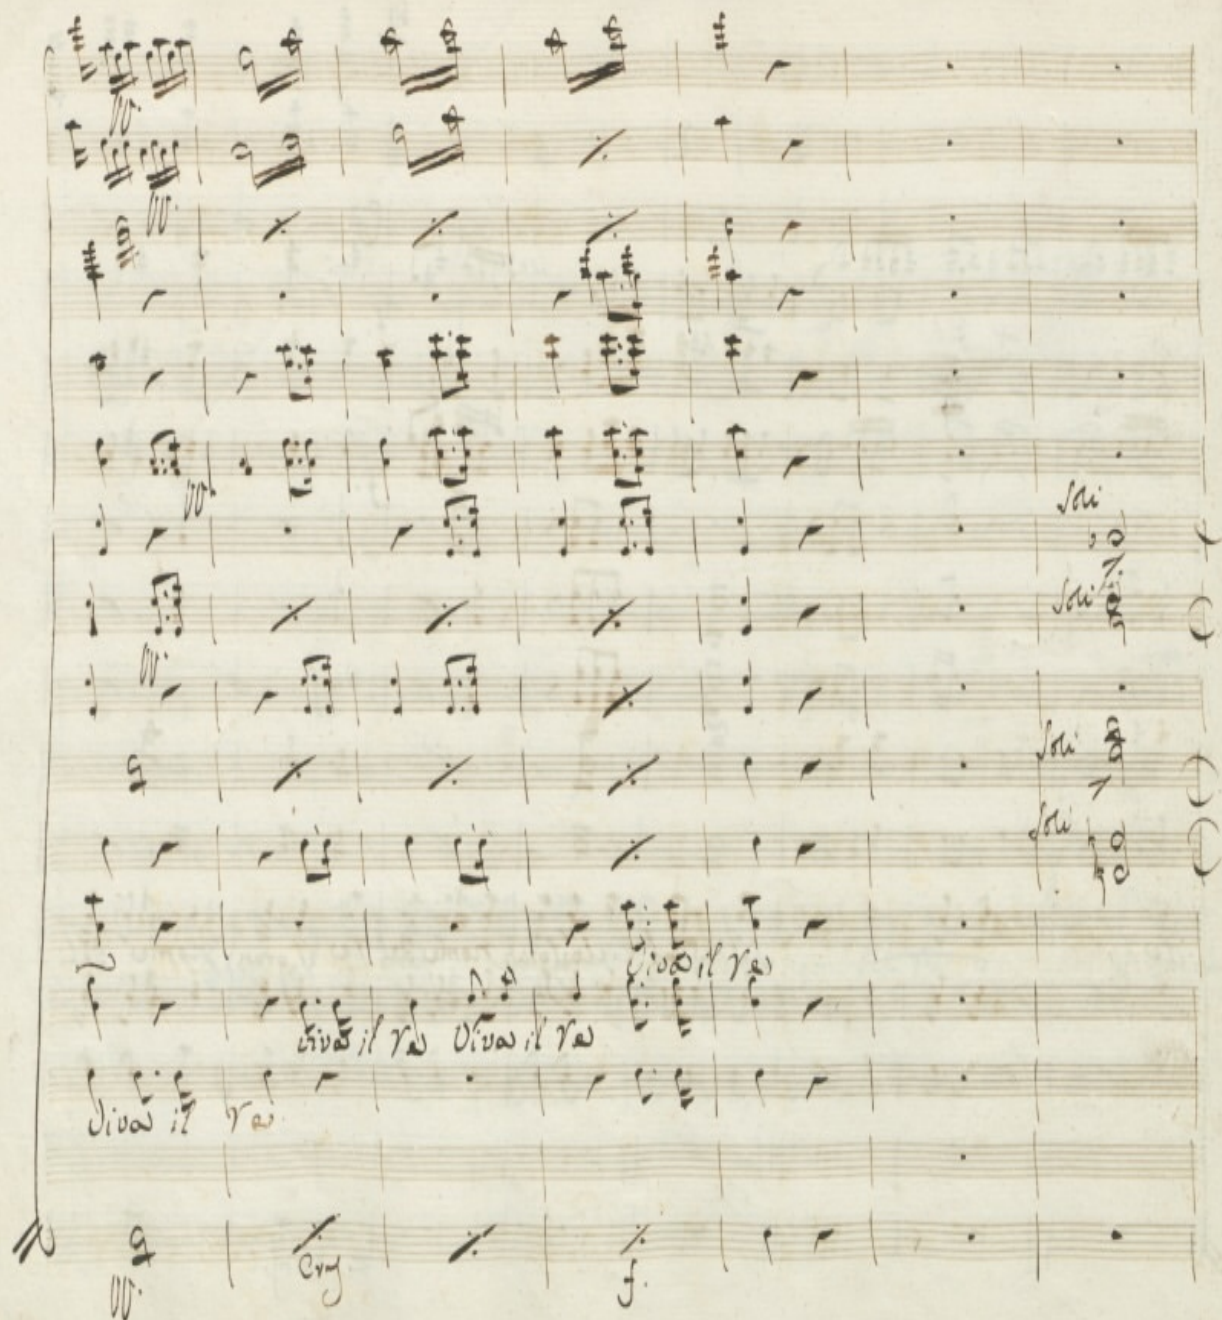 Soli
Soli
Soli
Soli
Viva il Re
viva il Re Viva il Re
Viva il Re
Cres
f.